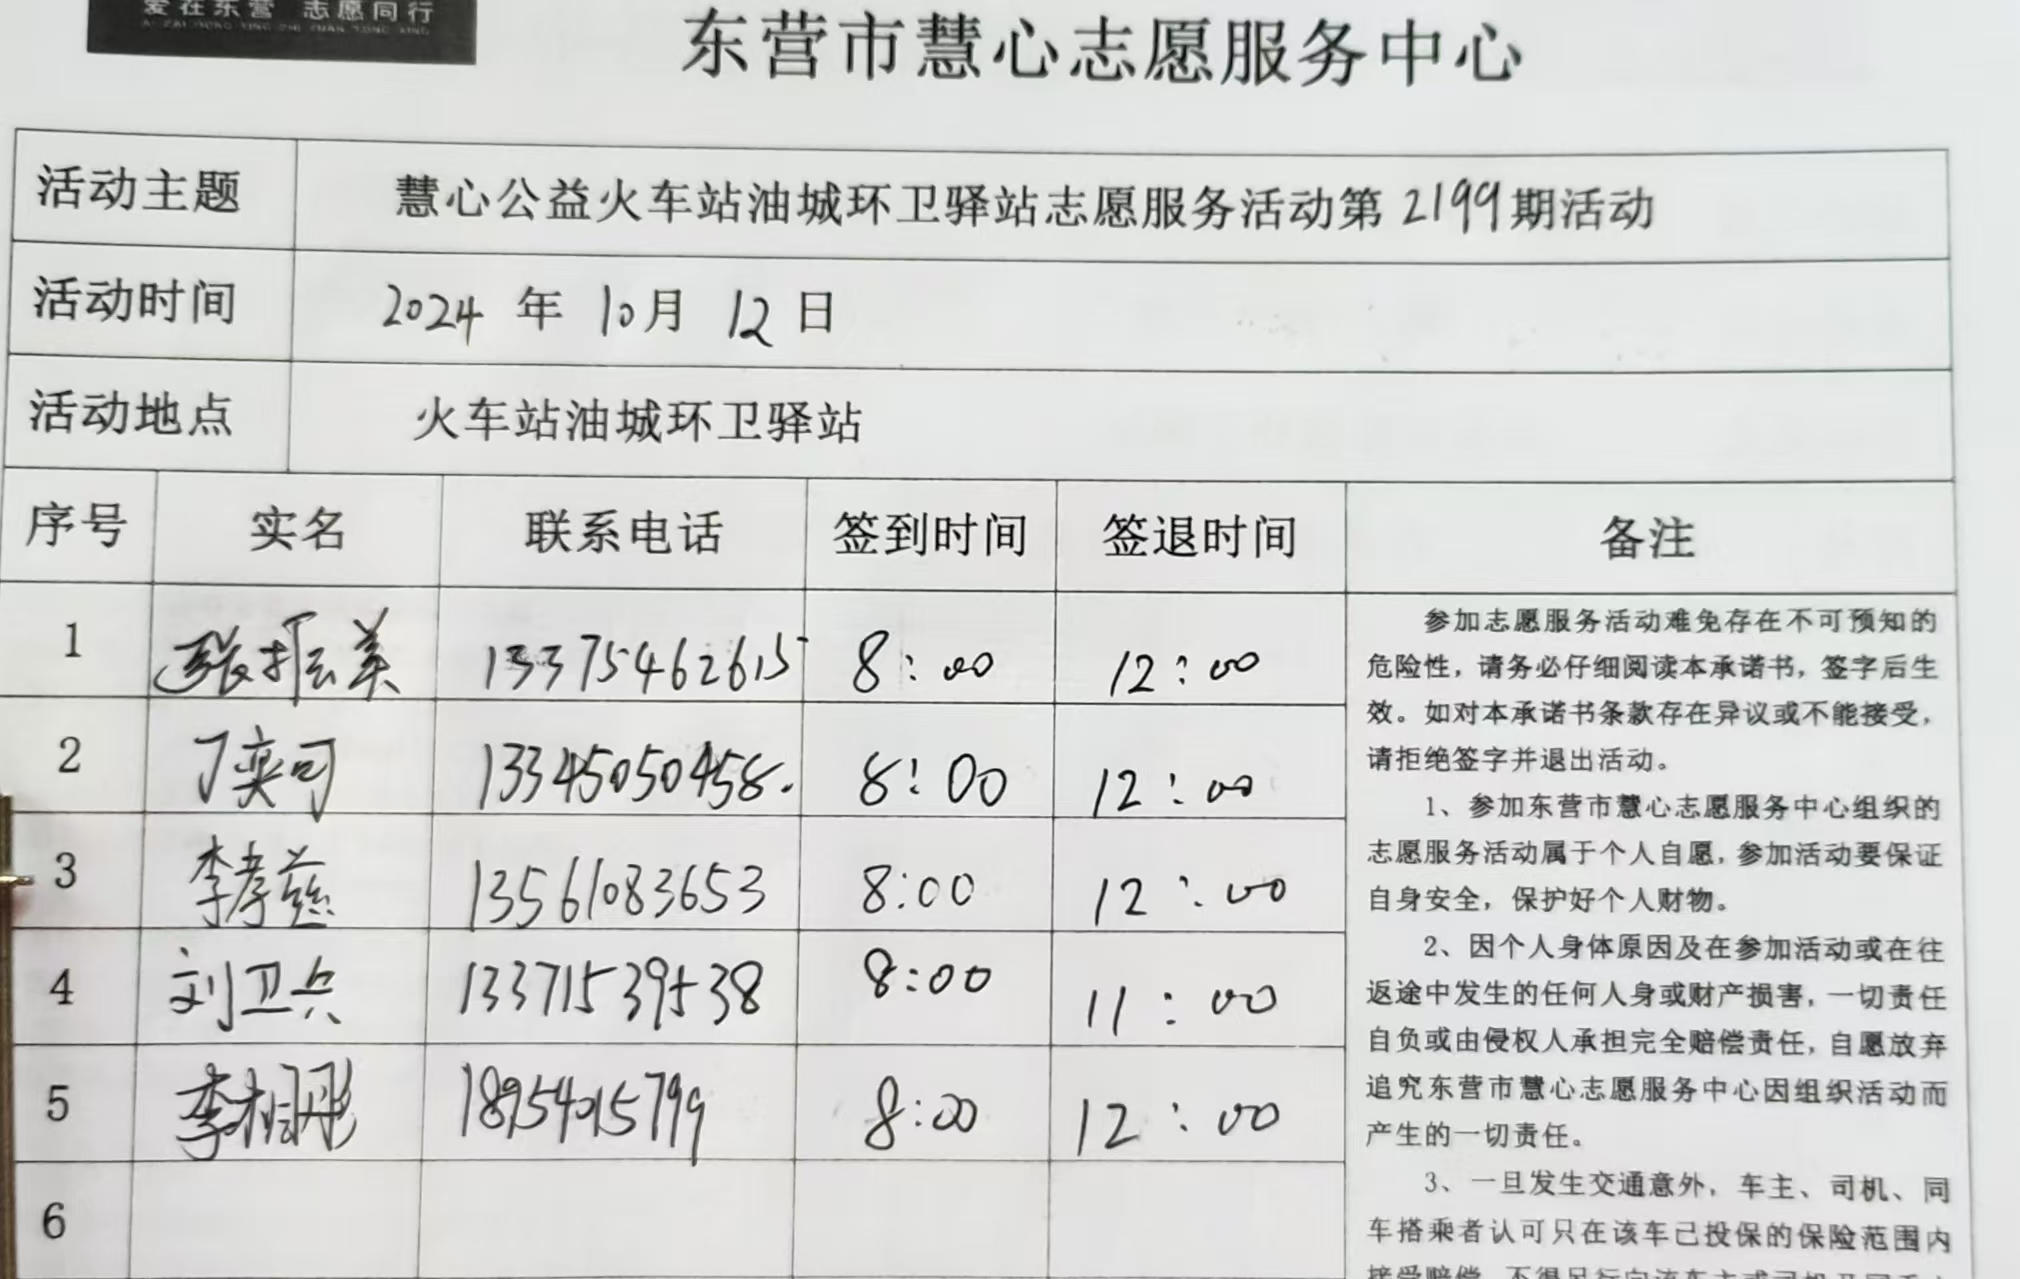 爱在东营 志愿同行
AI ZAI DONG YING ZHI YUAN TONG XING
东营市慧心志愿服务中心
活动主题 慧心公益火车站油城环卫驿站志愿服务活动第2199期活动
活动时间 2024年10月12日
活动地点 火车站油城环卫驿站
序号 实名 联系电话 签到时间 签退时间 备注
1 张振美 13375462615 8:00 12:00
2 丁奕可 13345050458. 8:00 12:00
3 李孝慈 13561083653 8:00 12:00
4 刘卫兵 13371539538 8:00 11:00
5 李相彤 18954015799 8:00 12:00
6
参加志愿服务活动难免存在不可预知的
危险性，请务必仔细阅读本承诺书，签字后生
效。如对本承诺书条款存在异议或不能接受，
请拒绝签字并退出活动。
1、参加东营市慧心志愿服务中心组织的
志愿服务活动属于个人自愿，参加活动要保证
自身安全，保护好个人财物。
2、因个人身体原因及在参加活动或在往
返途中发生的任何人身或财产损害，一切责任
自负或由侵权人承担完全赔偿责任，自愿放弃
追究东营市慧心志愿服务中心因组织活动而
产生的一切责任。
3、一旦发生交通意外，车主、司机、同
车搭乘者认可只在该车已投保的保险范围内